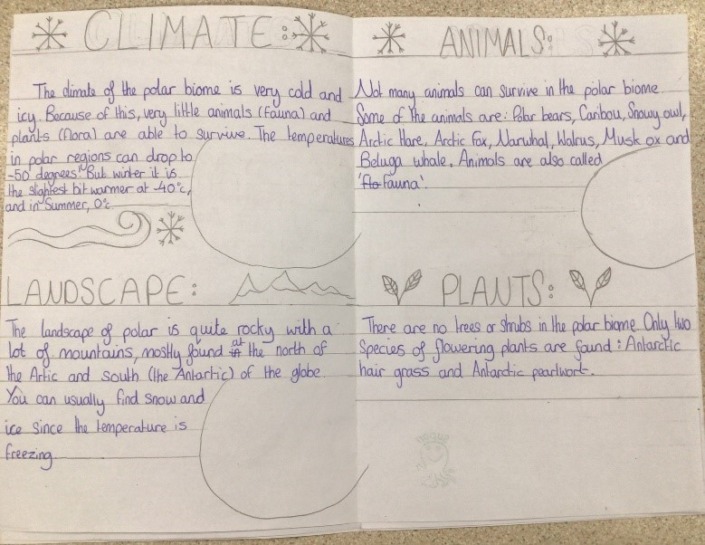 CLIMATE:
The climate of the polar biome is very cold and
icy. Because of this, very little animals (Fauna) and
plants (flora) are able to survive. The temperatures
in polar regions can drop to
-50 degrees. But winter it is
the slightest bit warmer at -40°c,
and in Summer, 0°c
LANDSCAPE:
The landscape of polar is quite rocky with a
lot of mountains, mostly found at the north of
the Artic and South (the Antartic) of the globe
You can usually find snow and
ice since the temperature is
freezing.
ANIMALS:
Not many animals can survive in the polar biome.
Some of the animals are: Polar bears, Caribou, Snowy owl,
Arctic Hare, Arctic Fox, Narwhal, Walrus, Musk ox and
Beluga whale. Animals are also called
'Fauna'.
PLANTS:
There are no trees or shrubs in the polar biome. Only two
Species of flowering plants are found: Antarctic
hair grass and Antarctic pearlwort.